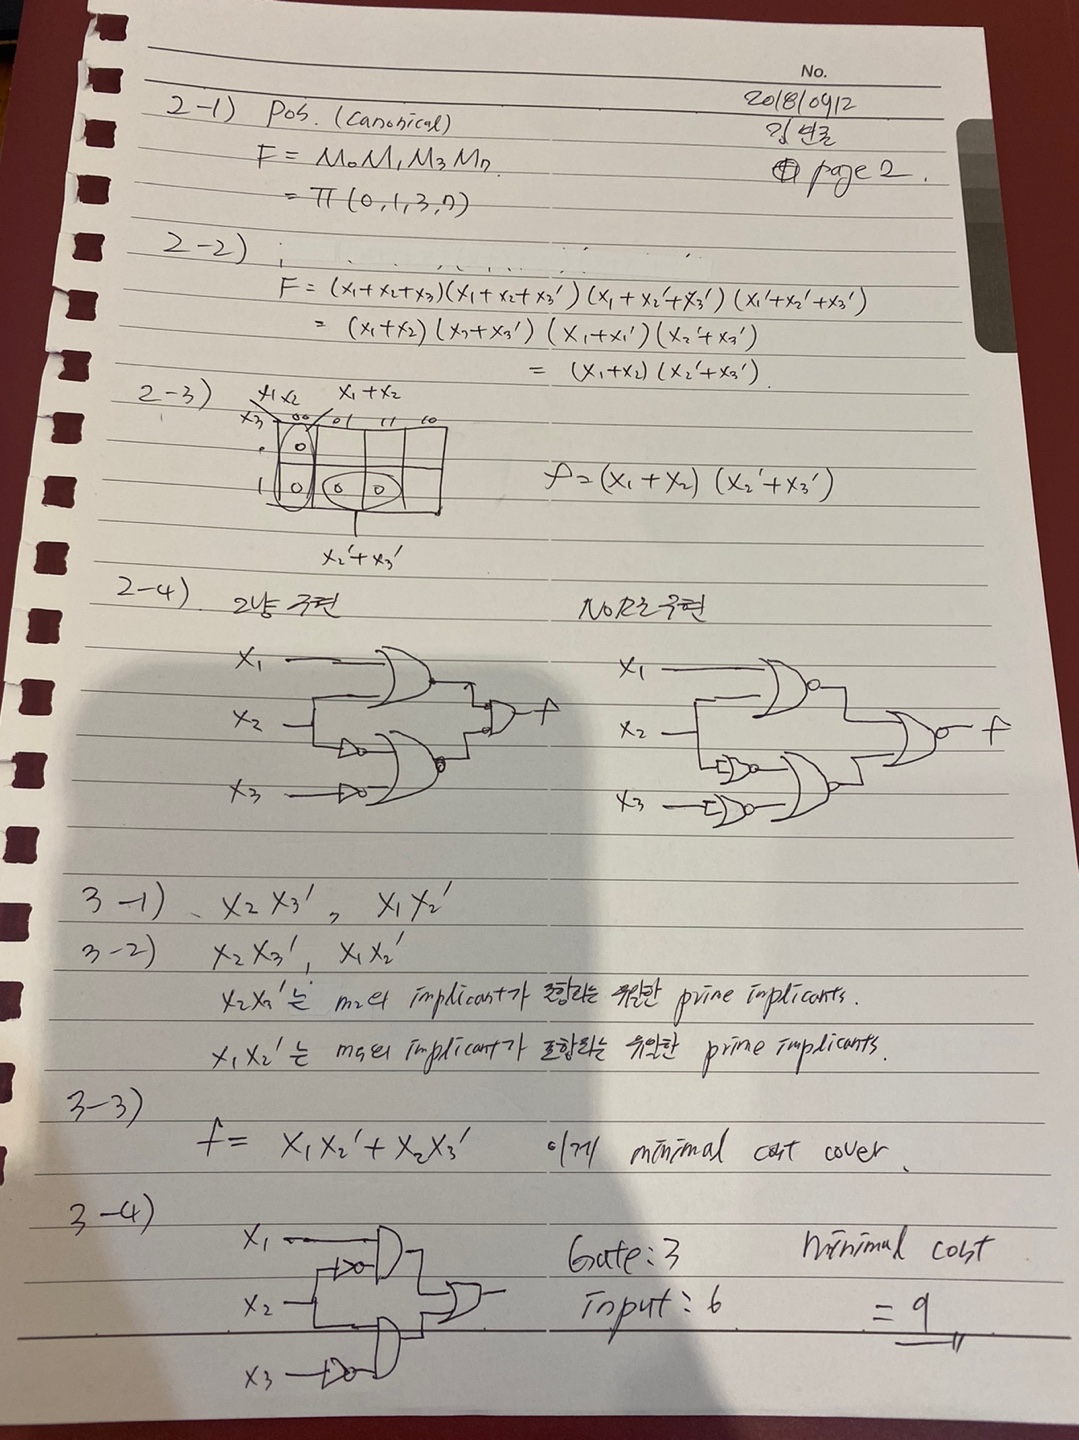 No.
2018/0912
page 2.
2-1) Pos. (Canonical)
F = M₀M₁M₃M₇
= π (0,1,3,7)
2-2)
F = (x₁+x₂+x₃)(x₁+x₂+x₃')(x₁+x₂'+x₃')(x₁'+x₂'+x₃')
= (x₁+x₂)(x₂+x₃')(x₁+x₁')(x₂'+x₃')
= (x₁+x₂)(x₂'+x₃').
2-3) x₁x₂ x₁+x₂
x₃ 00 01 11 10
0
1 0 0 0
f=(x₁+x₂)(x₂'+x₃')
x₂'+x₃'
2-4). 구현 NOR로 구현
x₁ x₁
x₂ f x₂ f
x₃ x₃
3-1) x₂x₃', x₁x₂'
3-2) x₂x₃', x₁x₂'
x₂x₃'는 m₂의 implicant가 포함되는 유일한 prime implicants.
x₁x₂'는 m₅의 implicant가 포함되는 유일한 prime implicants.
3-3)
f= x₁x₂'+x₂x₃' 이게 minimal cost cover.
3-4)
x₁ Gate:3 minimal cost
x₂ input:6 = 9
x₃